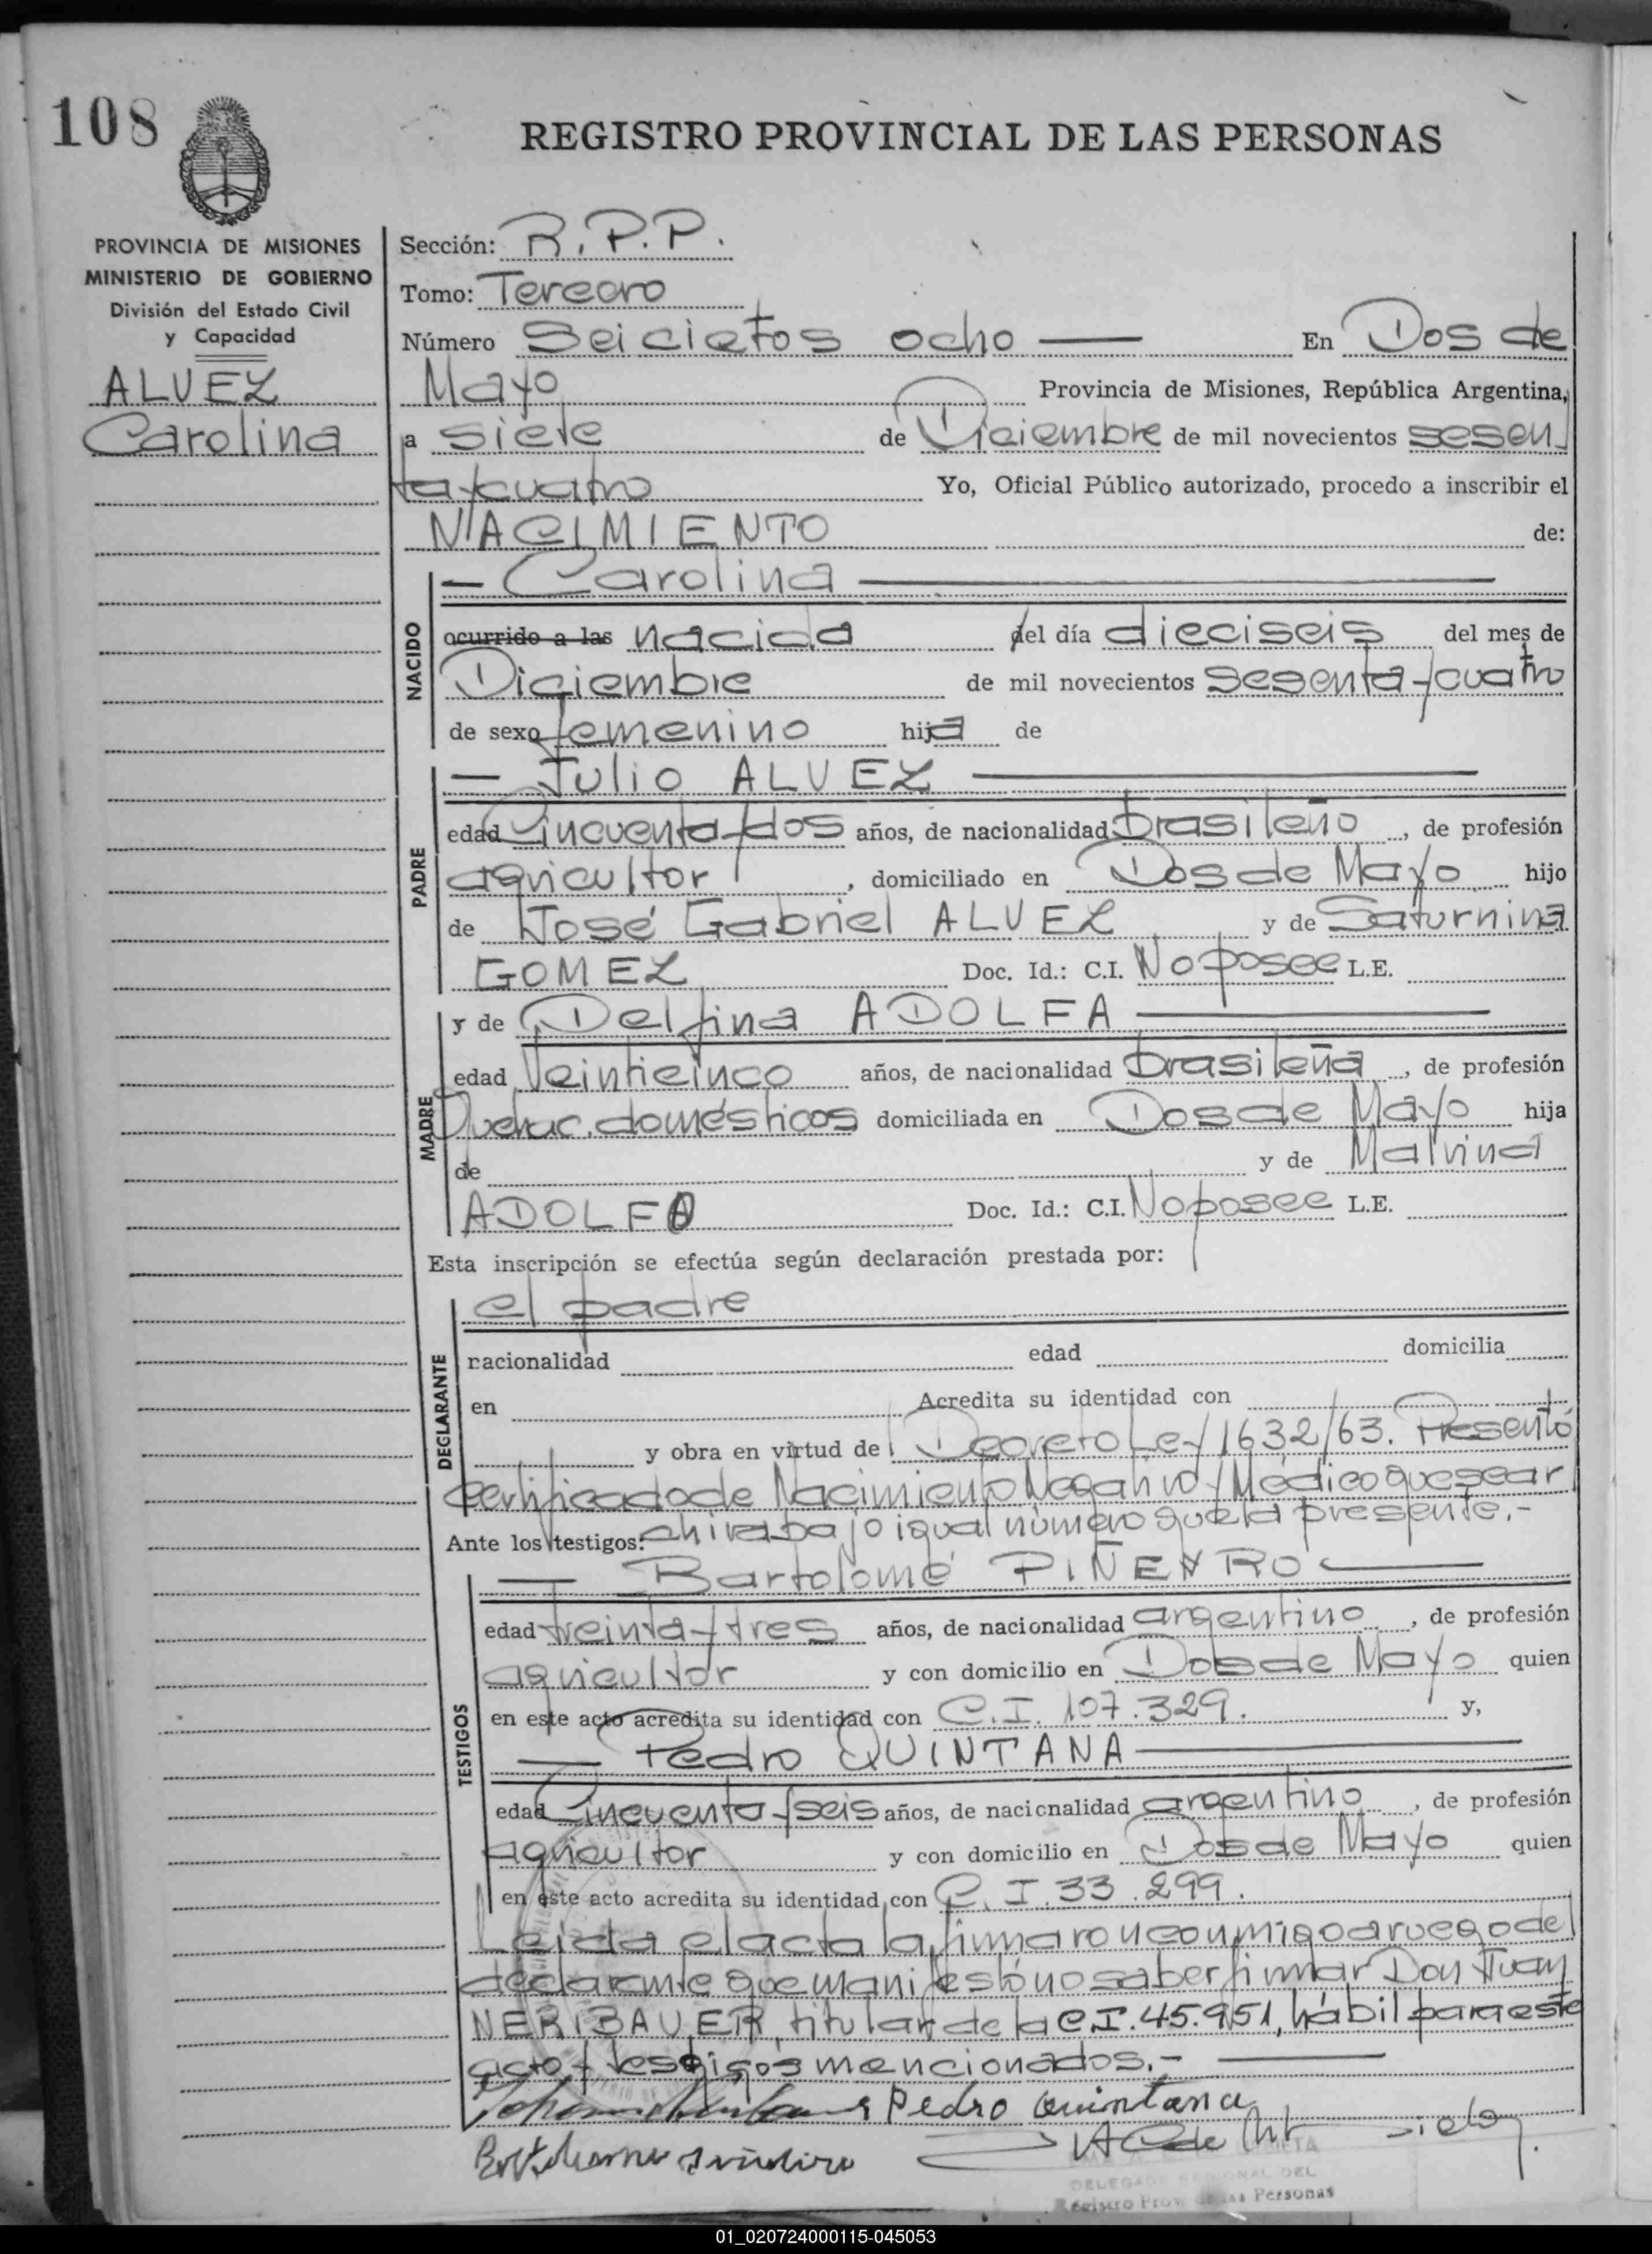 108
REGISTRO PROVINCIAL DE LAS PERSONAS
PROVINCIA DE MISIONES
MINISTERIO DE GOBIERNO
División del Estado Civil
y Capacidad
ALVEZ
Carolina
Sección: R.P.P.
Tomo: Tercero
Número Seicietos ocho — En Dos de
Mayo Provincia de Misiones, República Argentina,
a siete de Diciembre de mil novecientos sesen
ta y cuatro Yo, Oficial Público autorizado, procedo a inscribir el
NACIMIENTO de:
— Carolina —
NACIDO
ocurrido a las nacida del día dieciseis del mes de
Diciembre de mil novecientos sesenta y cuatro
de sexo femenino hija de
— Julio ALVEZ —
PADRE
edad Cincuenta y dos años, de nacionalidad brasileño, de profesión
agricultor, domiciliado en Dos de Mayo hijo
de José Gabriel ALVEZ y de Saturnina
GOMEZ Doc. Id.: C.I. No posee L.E.
MADRE
y de Delfina ADOLFA —
edad Veinticinco años, de nacionalidad brasileña, de profesión
Quehac. domésticos domiciliada en Dos de Mayo hija
de y de Malvina
ADOLFO Doc. Id.: C.I. No posee L.E.
Esta inscripción se efectúa según declaración prestada por:
el padre
DECLARANTE
nacionalidad edad domicilia
en Acredita su identidad con
y obra en virtud de Decreto Ley 1632/63. Presentó
certificado de Nacimiento Negativo y Médico que se ar
Ante los testigos: chiva bajo igual número que la presente.-
— Bartolomé PIÑEYRO —
TESTIGOS
edad treinta y tres años, de nacionalidad argentino, de profesión
agricultor y con domicilio en Dos de Mayo quien
en este acto acredita su identidad con C.I. 107.329. y,
— Pedro QUINTANA —
edad Cincuenta y seis años, de nacionalidad argentino, de profesión
agricultor y con domicilio en Dos de Mayo quien
en este acto acredita su identidad con C.I. 33.299.
Leida el acta la firmaron conmigo a ruego del
declarante que manifestó no saber firmar Don Juan
NERIBAUER, titular de la C.I. 45.951, hábil para este
acto y testigos mencionados.- —
Pedro Quintana
DELEGADO REGIONAL DEL
Registro Prov. de las Personas
01_020724000115-045053